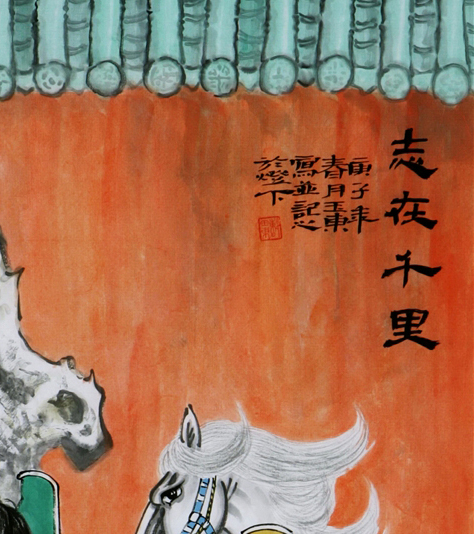 志在千里
庚子年
春月王東
寫並記之
於燈下